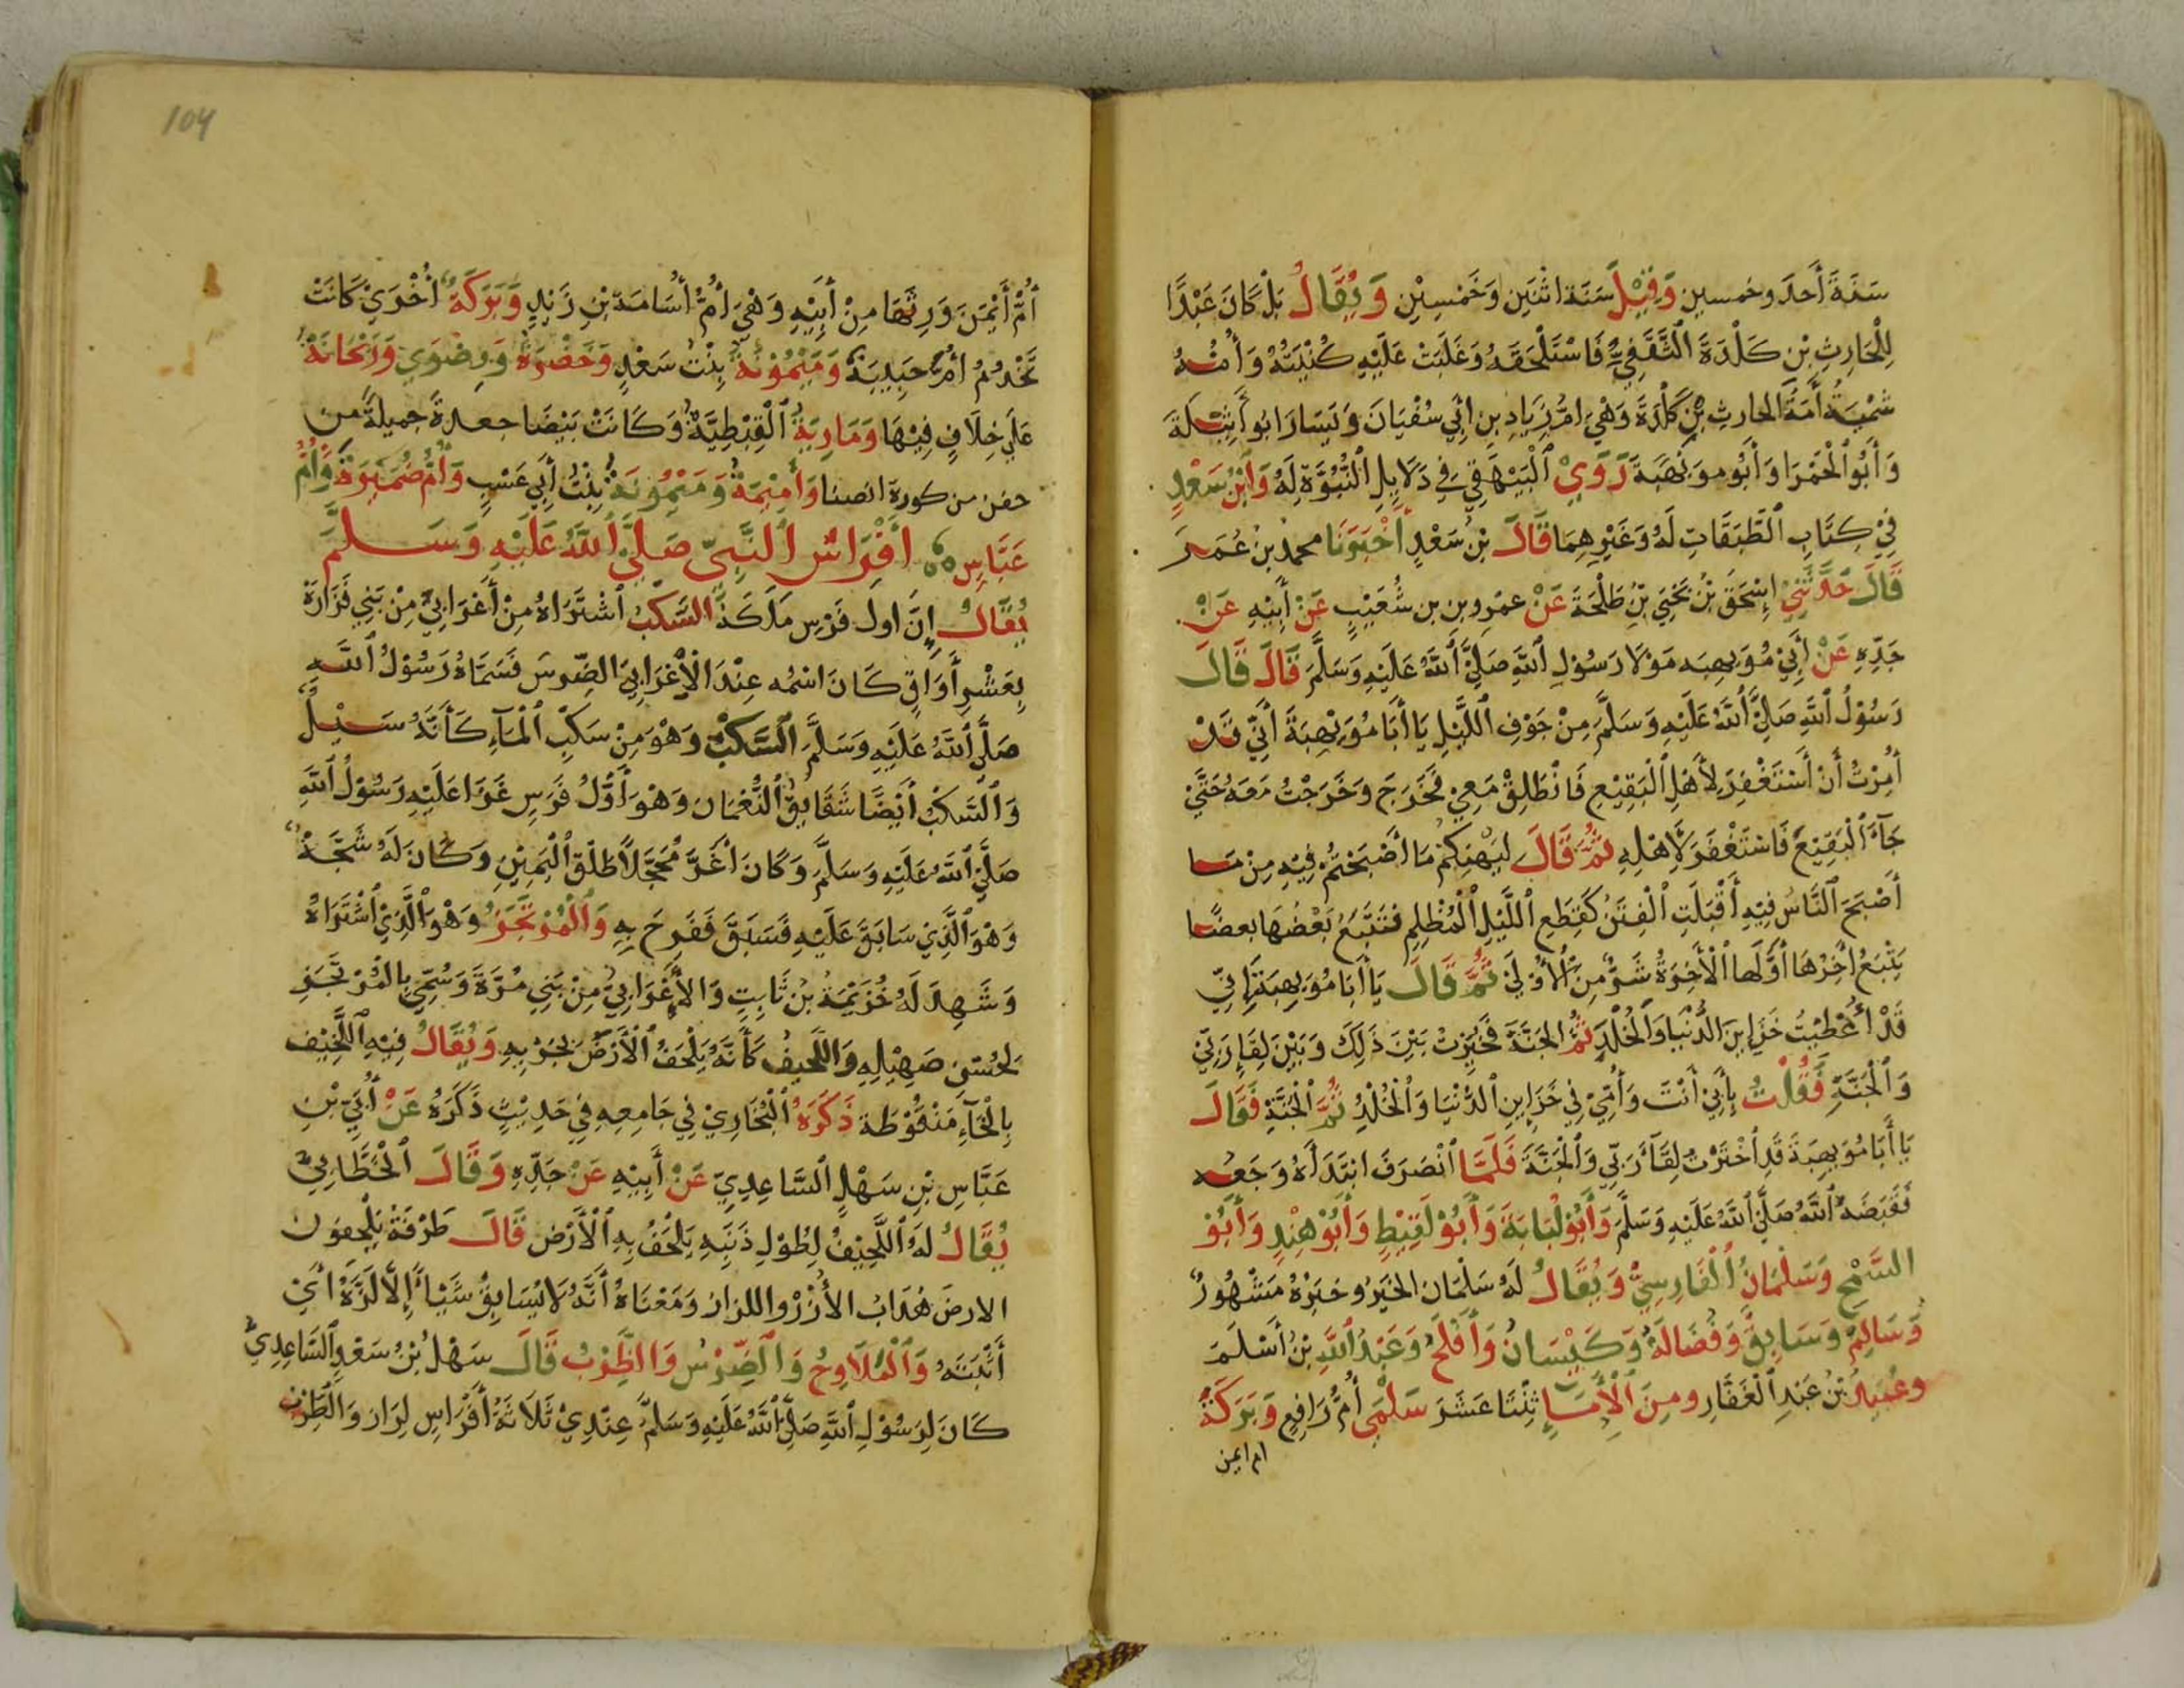 سَنَةَ أَحدَ وخمسين وَقِيْلَ سَنَة اثْنَين وَخَمْسِيْنَ وَيُقَالُ بَلْ كَانَ عَبْدًا
لِلْحَارِثِ بْنِ كَلْدَةَ الثَّقَفِيِّ فَاسْتَلْحَقَهُ وَغَلَبَتْ عَلَيْهِ كُنْيَتُهُ وَأُمُّهُ
سُمَيَّةُ أَمَةُ الحارثِ بْنِ كَلْدَةَ وَهْيَ امُّ زِيَادِ بنِ ابِي سُفْيَانَ وَيَسَارَ ابُو أَثِيْلَةَ
وَأَبُو الْحَمْرَا وَأَبُو مويْهِبَةَ رَوَيْ الْبَيْهَقِي فِي دَلَايِلِ النُّبُوَّةِ لَهُ وَابْنُ سَعْدٍ
فِيْ كِتَابِ الطَّبَقَاتِ لَهُ وَغَيْرِهِمَا قَالَ بْنُ سَعْدٍ أَخْبَرَنَا محمدُ بنُ عُمَرَ
قَالَ حَدَّثَنِيْ إِسْحَقُ بْنُ يَحْيَي بْنِ طَلْحَةَ عَنْ عمْرِو بن بن شُعَيْبٍ عَنْ أَبِيْهِ عَنْ
جَدِّهِ عَنْ أَبِيْ مُوَيهِبَه مَوْلَا رَسُوْلِ اللهِ صَلَّيَ اللهُ عَلَيْهِ وَسَلَّمَ قَالَ قَالَ
رَسُوْلُ اللهِ صَلَّيَ اللهُ عَلَيْهِ وَسَلَّمَ مِنْ جَوْفِ اللَّيْلِ يَا أَبَا مُوَيْهِبَةَ أَنِّي قَدْ
أُمِرْتُ أَنْ أَسْتَغْفِرَ لِأَهْلِ الْبَقِيْعِ فَانْطَلِقْ مَعِيْ فَخَرَجَ وَخَرَجْتُ مَعَهُ حَتَّيْ
جَآءَ الْبَقِيْعَ فَاسْتَغْفَرَ لِأَهْلِهِ ثُمَّ قَالَ لِيَهْنِكُمْ مَا أَصْبَحْتُمْ فِيْهِ مِنْ مَا
أَصْبَحَ النَّاسُ فِيْهِ أَقْبَلَتِ الْفِتَنُ كَقِطَعِ اللَّيْلِ الْمُظْلِمِ فتَتَبَّعُ بَعْضُهَا بعضًا
يَتْبَعُ اخِرُهَا أوَّلَها الْأَخِرَةُ شَرٌّ مِنَ الْأُوْلَيْ ثُمَّ قَالَ يَا أَبَا مُوَيهِبَةَ إِنِّي
قَدْ أُعْطِيْتُ خَزَايِنَ الدُّنْيَا وَالْخُلْدَ ثُمَّ الْجَنَّةَ فَخُيِّرْتُ بَيْنَ ذَلِكَ وَبَيْنَ لِقَاءِ رَبِّيْ
وَالْجَنَّةِ فَقُلْتُ بِأَبِيْ أَنْتَ وَأُمِّيْ فِي خَزَايِنِ الدُّنْيَا وَالْخُلْدِ ثُمَّ الْجَنَّةِ فَقَالَ
يَا أَبَا مُوَيهِبَةَ قَدِ اخْتَرْتُ لِقَآءَ رَبِّي وَالْجَنَّةَ فَلَمَّا انْصَرَفَ ابْتَدَأَهُ وَجَعه
فَقَبَضَهُ اللهُ صَلَّيَ اللهُ عَلَيْهِ وَسَلَّمَ وَأَبُوْ لُبَابَةَ وَأَبُوْ لَقِيْطٍ وَأَبُوْ هِنْدٍ وَأَبُوْ
السَّمْحِ وَسَلْمَانُ الْفَارِسِيُّ وَيُقَالُ لَهُ سَلْمَانُ الخَيْرُ وخَبَرُهُ مَشْهُورٌ
وَسَالِمٌ وَسَابِقٌ وَفُضَالَةُ وَكَيْسَانُ وَأَفْلَحُ وَعَبْدُ اللهِ بْنُ أَسْلَمَ
وعُبَيدُ بْنُ عَبْدِ الْغَفَّارِ ومِنَ الْإِمَاءِ ثِنْتَا عَشَرَ سَلْمَي أُمُّ رَافِعٍ وَبَرَكَةُ
ام ايمن
104
أُمُّ أَيْمَنَ وَرِثَهَا مِنْ أَبِيْهِ وَهْيَ أُمُّ أُسَامَةَ بْنِ زَيْدٍ وَبَرَكَةُ أُخْرَيْ كَانَتْ
تَخْدُمُ أُمَّ حَبِيبَةَ وَمَيْمُوْنَةُ بِنْتُ سَعْدٍ وَخَضْرَةُ وَرِضْوَي وَرَيْحَانَةُ
عَلَي خِلَافٍ فِيْهَا وَمَارِيَةُ الْقِبْطِيَّةُ وَكَانَتْ بَيْضَا جعدةً جميلةً من
حفن من كورة انصنا وَأُمَيْمَةُ وَمَيْمُونَةُ بِنْتُ أَبِي عَسْيبٍ وَأُمُّ ضُمَيْرَةَ وَأُمُّ
عَبَّاسٍ أَفْرَاسُ النَّبِيّ صَلَّيَ اللهُ عَلَيْهِ وَسَلَّمَ
يُقَالُ إِنَّ اولَ فَرَسٍ مَلَكَهُ السَّكْبُ اشْتَرَاهُ مِنْ أَعْرَابِيٍّ مِنْ بَنِي فَزَارَةَ
بِعَشْرِ أَوَاقٍ كَانَ اسْمُه عِنْدَ الْأَعْرَابِيِّ الضَّرِسَ فَسَمَّاهُ رَسُوْلُ اللهِ
صَلَّي اللهُ عَلَيْهِ وَسَلَّمَ السَّكْبَ وَهْوَ مِنْ سَكْبِ الْمَآءِ كَأَنَّهُ سَيْلٌ
وَالسَّكْبُ أَيْضًا شَقَايِقُ النُّعْمَانِ وَهْوَ أَوَّلُ فَرَسٍ غَزَا عَلَيْهِ رَسُوْلُ اللهِ
صَلَّيَ اللهُ عَلَيْهِ وَسَلَّمَ وَكَانَ أَغَرَّ مُحَجَّلًا طَلْقَ الْيَمِيْنِ وَكَانَ لَهُ سَبْحَةُ
وَهْوَ الَّذِيْ سَابَقَ عَلَيْهِ فَسَبَقَ فَفَرِحَ بِهِ وَالْمُرْتَجِزُ وَهْوَ الَّذِيْ اشْتَرَاهُ
وَشَهِدَ لَهُ خُزَيْمَةُ بْنُ ثَابِتٍ وَالْأَعْرَابِيُّ مِنْ بَنِي مُرَّةَ وَسُمِّيَ بِالْمُرْتَجِزِ
لِحُسْنِ صَهِيْلِهِ وَاللَّحِيفُ كَأَنَّهُ يَلْحَفُ الْأَرْضَ بِجَرْيِهِ وَيُقَالُ فِيْهِ اللَّخِيْفُ
بِالْخَآءِ مَنْقُوْطَة ذَكَرَهُ الْبُخَارِيْ فِي جَامِعِهِ فِيْ حَدِيْثٍ ذَكَرَهُ عَنْ أُبَيِّ بْنِ
عَبَّاسِ بْنِ سَهْلٍ السَّاعِدِيِّ عَنْ أَبِيْهِ عَنْ جَدِّهِ وَقَالَ الْخَطَّابِيُّ
يُقَالُ لَهُ اللَّحِيْفُ لِطُوْلِ ذَنَبِهِ يَلْحَفُ بِهِ الْأَرْضَ قَالَ طَرْفَةُ يَلْحِفون
الارضَ هُدَابُ الْأُزْرْ واللزاز وَمَعْنَاهُ أَنَّهُ لَا يُسَابِقُ شَيْئاً إِلَّا لَزَّهُ أَيْ
أَثْبَتَهُ وَالْمُلَاوِحُ وَالضَّرْسُ وَالظَّرْبُ قَالَ سَهْلُ بْنُ سَعْدٍ السَّاعِدِيُّ
كَانَ لِرَسُوْلِ اللهِ صَلَّيَ اللهُ عَلَيْهِ وَسَلَّمَ عِنْدِيْ ثَلَاثَةُ أَفْرَاسٍ لِزَاز وَالظَّرْب